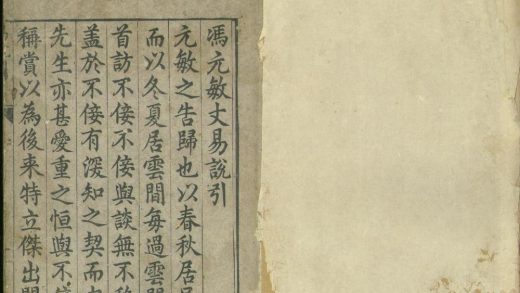 馮元敏丈易說引
元敏之告歸也以春秋居
而以冬夏居雲間每過雲間
首訪不佞不佞與談無不
蓋於不佞有深知之契而
先生亦甚愛重之恒與不
稱賞以為後来特立傑出